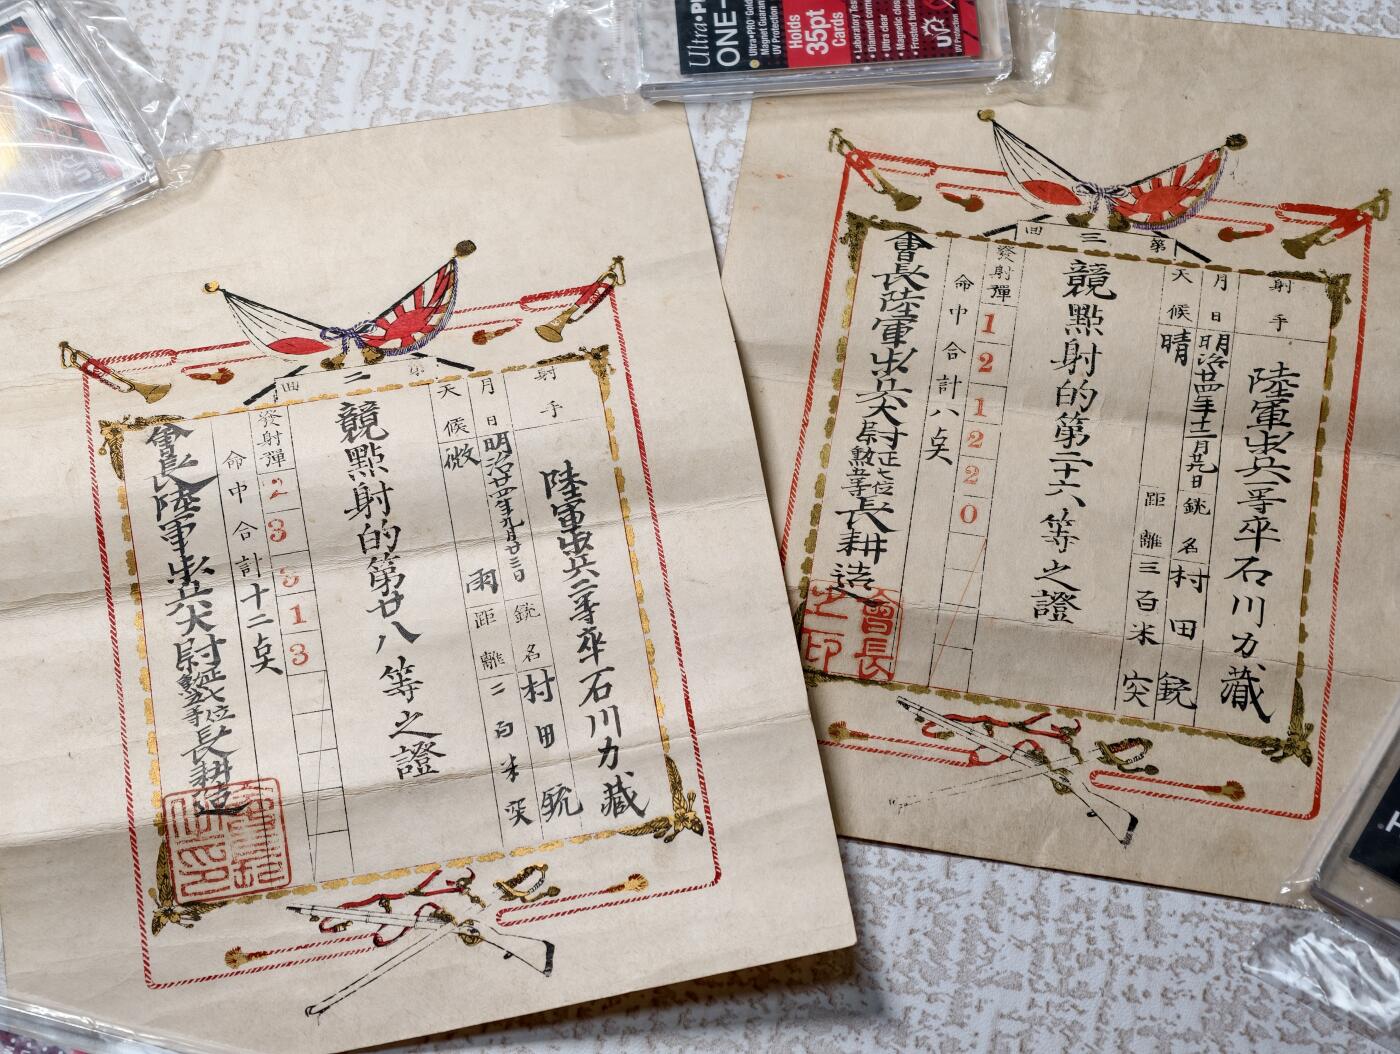 第二回
射手 陸軍歩兵二等卒石川力藏
月日 明治廿四年九月廿三日 銃名 村田銃
天候 微雨 距離 二百米突
競點射的第廿八等之證
發射彈 2 3 3 1 3
命中合計 十二奌
會長陸軍歩兵大尉正七位勲五等長耕造
第三回
射手 陸軍歩兵一等卒石川力藏
月日 明治廿四年十二月廿九日 銃名 村田銃
天候 晴 距離 三百米突
競點射的第二十六等之證
發射彈 1 2 1 2 2 0
命中合計 八奌
會長陸軍歩兵大尉正七位勲五等長耕造
會長之印
Ultra•P
ONE-
• Ultra•PRO Gold
Magnet Guaran
UV Protection
Holds
35pt
Cards
• Laboratory Tes
• Diamond corne
• Ultra clear
• Magnetic clos
• Frosted borde
UV
UV Protection